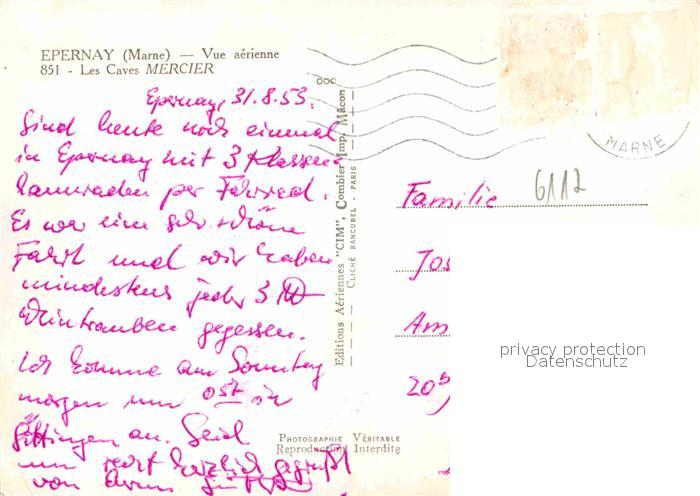 EPERNAY (Marne) — Vue aérienne
851 - Les Caves MERCIER
Epernay, 31.8.53.
Sind heute noch einmal
in Epernay mit 3 Klassen-
kameraden per Fahrrad.
Es war eine sehr schöne
Fahrt und wir haben
mindestens jeder 3 ℔
Weintrauben gegessen.
Ich komme am Sonntag
morgen um 0 57 in
Göttingen an. Seid
nun recht herzlich gegrüßt
von Eurem
Editions Aériennes "CIM", Combier Imp. Mâcon
CLICHÉ RANCUREL - PARIS
PHOTOGRAPHIE VÉRITABLE
Reproduction Interdite
MARNE
6112
Familie
Jos
Am
20b
privacy protection
Datenschutz